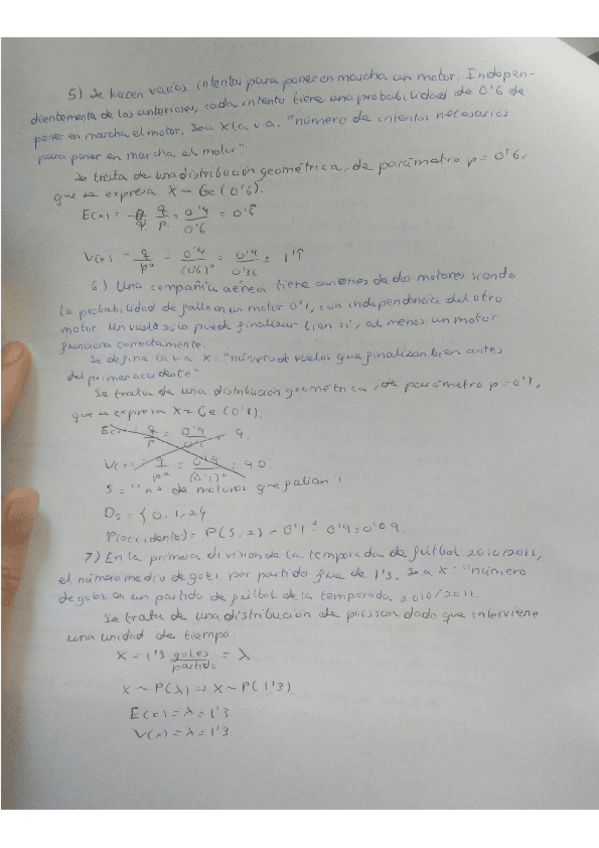 5) Se hacen varios intentos para poner en marcha un motor. Indepen-
dientemente de los anteriores, cada intento tiene una probabilidad de 0'6 de
poner en marcha el motor. Sea X la v.a. "número de intentos necesarios
para poner en marcha el motor"
Se trata de una distribución geométrica, de parámetro p = 0'6,
que se expresa X ~ Ge (0'6).
E(x) = q/p = 0'4/0'6 = 0'6̂
V(x) = q/p² = 0'4/(0'6)² = 0'4/0'36 = 1'1̂
6) Una compañía aérea tiene aviones de dos motores siendo
la probabilidad de fallo en un motor 0'1, con independencia del otro
motor. Un vuelo sólo puede finalizar bien si, al menos un motor
funciona correctamente.
Se define la v.a X: "número de vuelos que finalizan bien antes
del primer accidente"
Se trata de una distribución geométrica, de parámetro p = 0'1,
que se expresa X ~ Ge (0'1).
E(x) = q/p = 0'9/0'1 = 9.
V(x) = q/p² = 0'9/(0'1)² = 90.
S = "nº de motores que fallan"
Ds = {0, 1, 2}
P(accidente) = P(S = 2) = 0'1 · 0'9 = 0'09.
7) En la primera division de la temporada de fútbol 2010/2011,
el número medio de goles por partido fue de 1'3. Sea X: "número
de goles en un partido de fútbol de la temporada 2010/2011.
Se trata de una distribución de poisson dado que interviene
una unidad de tiempo.
X = 1'3 goles/partido = λ
X ~ P(λ) => X ~ P(1'3)
E(x) = λ = 1'3
V(x) = λ = 1'3